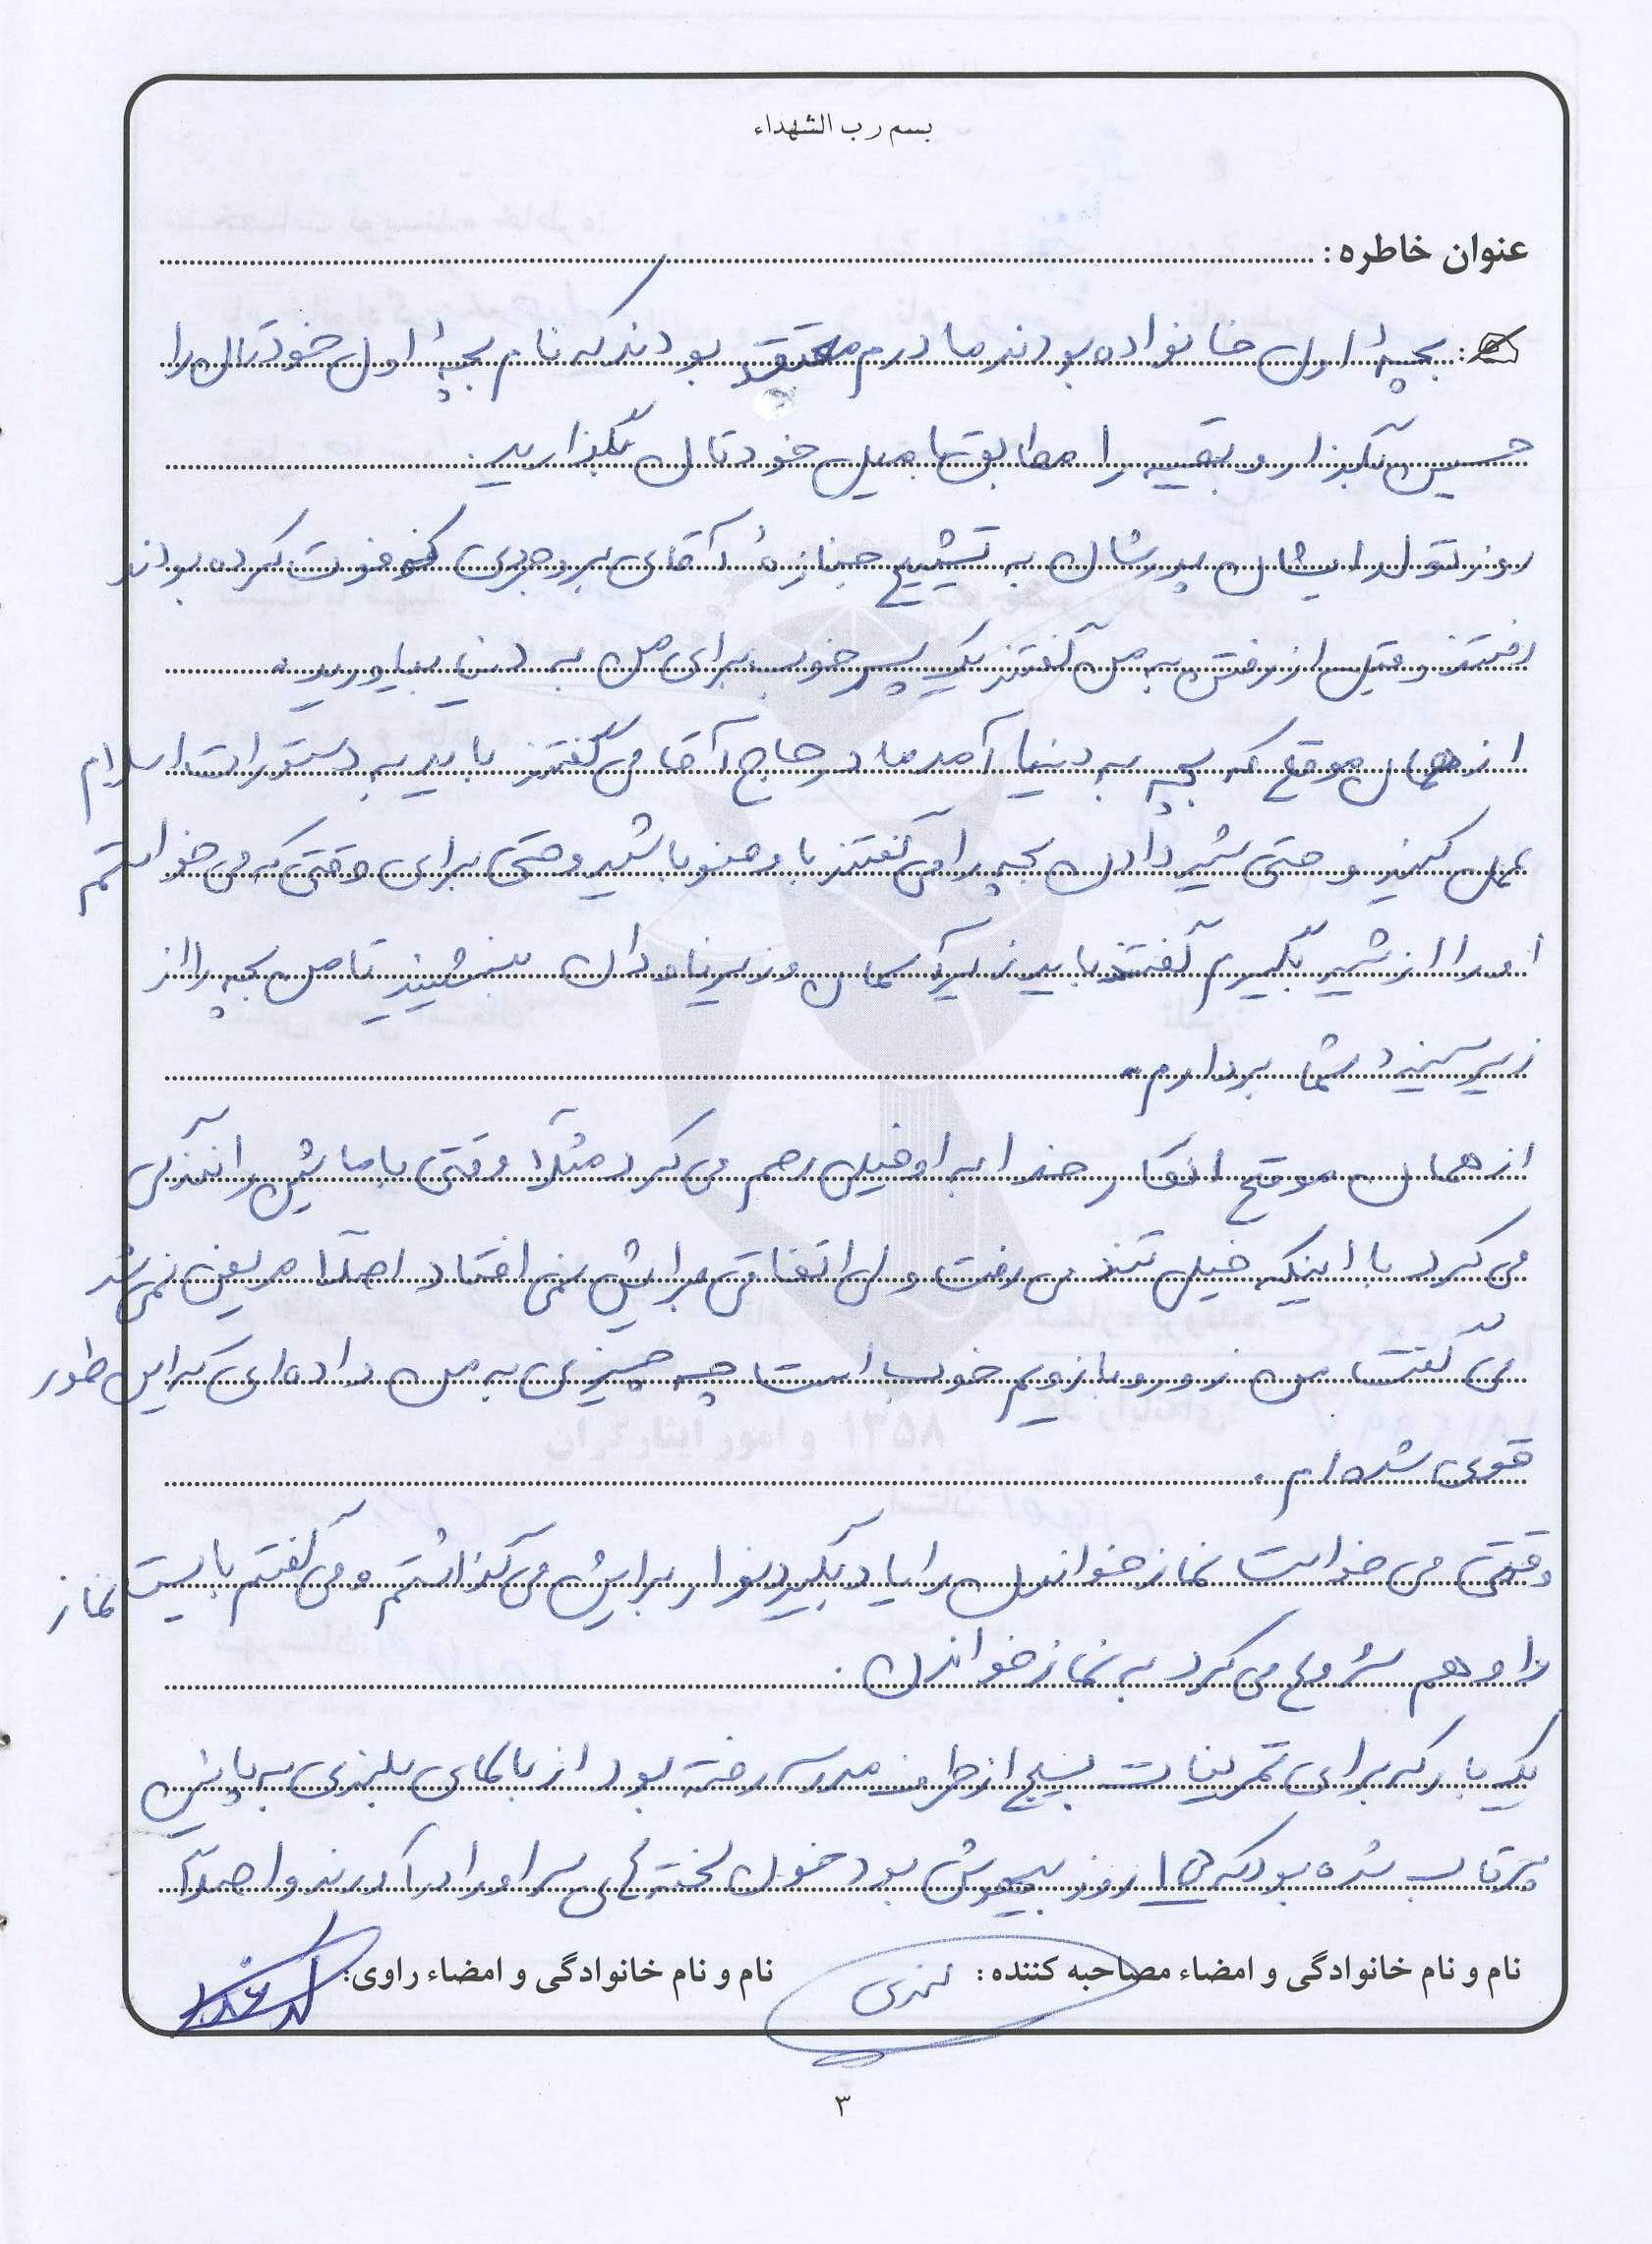 بسم رب الشهداء
عنوان خاطره :
بچهٔ اول خانواده بودند مادرم معتقد بودند که نام بچهٔ اول خودتان را
حسین بگذار و بقیه را مطابق با میل خودتان بگذارید.
روز تولد ایشان پدرشان به تشییع جنازهٔ آقای بروجردی که فوت کرده بودند
رفتند و قبل از رفتن به من گفتند یک پسر خوب برای من به دنیا بیاورید.
از همان موقع که بچه به دنیا آمد مادر حاج آقا می گفتند باید به دستورات اسلام
عمل کنید و حتی شیر دادن بچه را می گفتند با وضو باشید و حتی برای وقتی که می خواستم
او را از شیر بگیرم گفتند باید زیر آسمان و زیر ناودان بنشینید تا من بچه را از
زیر سینه شما بردارم.
از همان موقع انگار خدا به او خیلی رحم می کرد مثلاً وقتی با ماشین رانندگی
می کرد با اینکه خیلی تند می رفت ولی اتفاقی برایش نمی افتاد اصلاً مریض نمی شد
می گفت من زور و بازویم خوب است چه چیزی به من داده ای که این طور
قوی شده ام.
وقتی می خواست نماز خواندن را یاد بگیرد نوار برایش می گذاشتم و می گفتم بایست نماز
و او هم شروع می کرد به نماز خواندن.
یک بار که برای تمرینات بسیج از طرف مدرسه رفته بود از بالای بلندی به پائین
پرتاب شده بود که ۱۵ روز بیهوش بود خون لخته های سر او را درآوردند و اصلاً
نام و نام خانوادگی و امضاء مصاحبه کننده : نام و نام خانوادگی و امضاء راوی:
۳